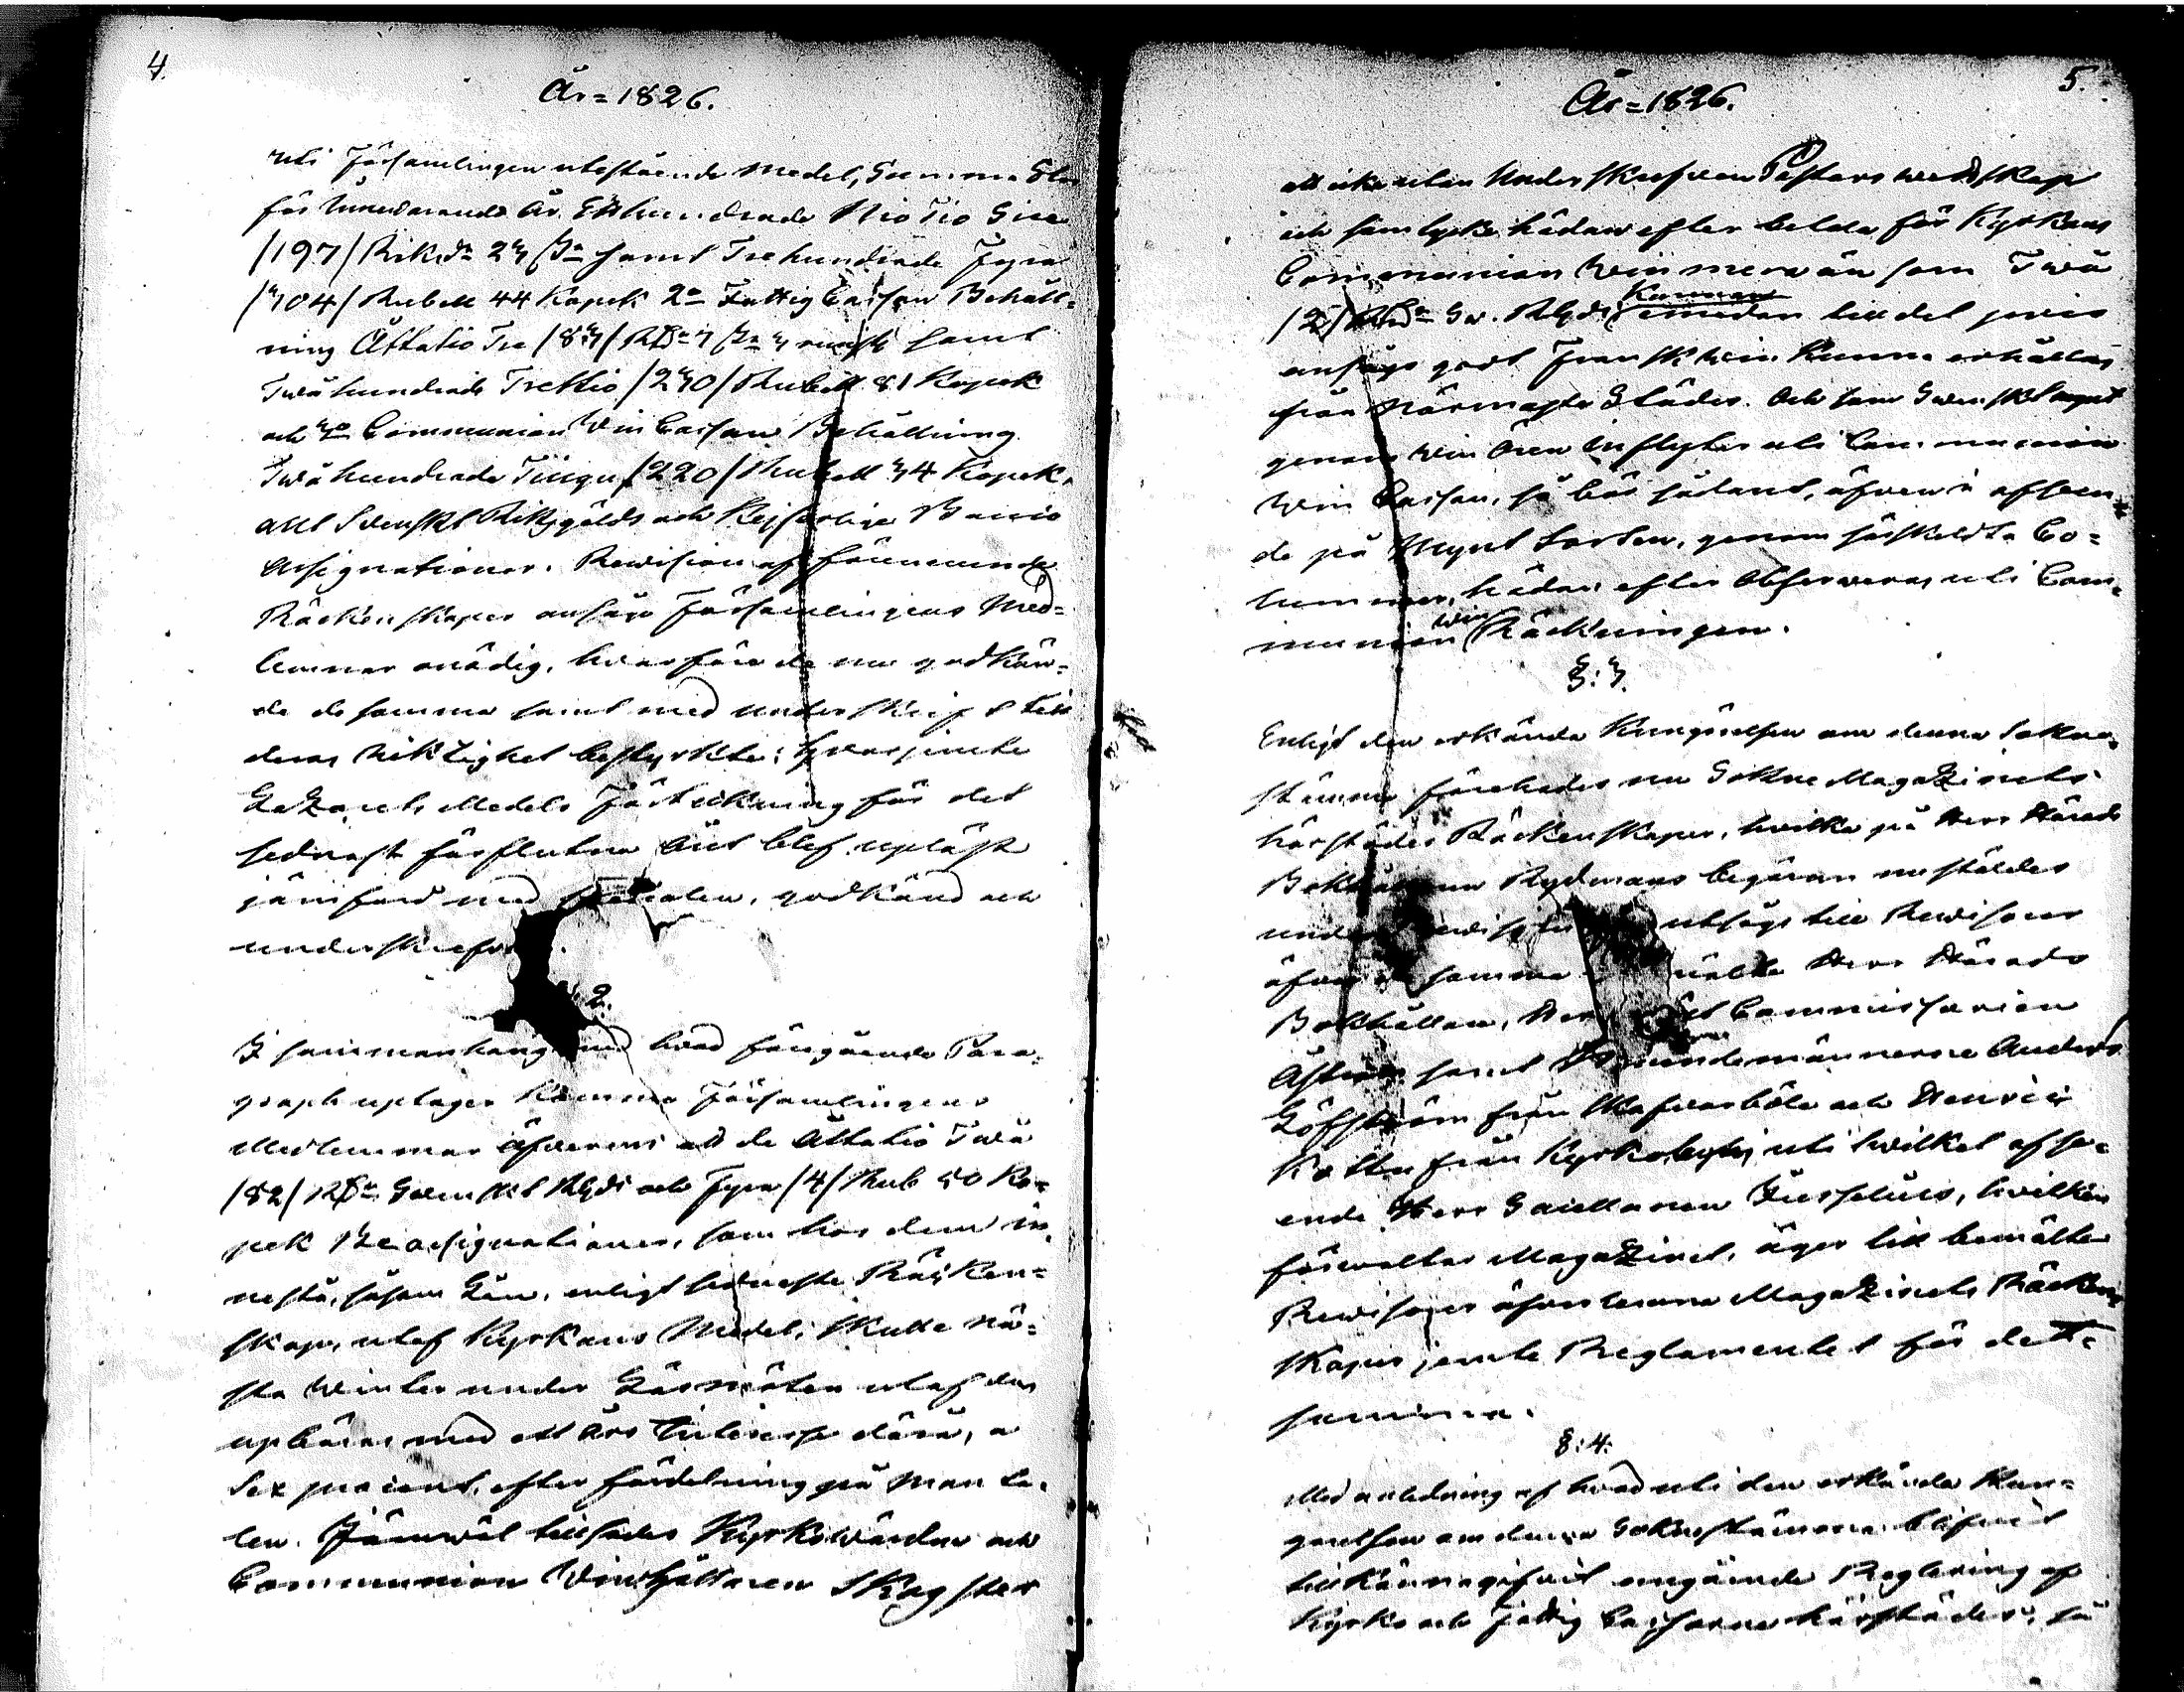 4.
År = 1826.
uti Församlingen utestående medel, Summa
för innewarande År Etthundrade Nio Tio Siu
/197/ Riksd. 23 samt Trehundrade Fyra
/304/ Rubell 44 Kopek 2o Fattig Cassan Behåll-
ning Åttatio Tre /83/ samt
Twåhundrade Trettio /230/ Rubell 81 Kopek
och 3o Communion Vin Cassans Behållning
Twåhundrade Tiugu /220/ Rubell 34 Kopek,
allt Svenskt Riksgälds och Kejserlige Banco
Assignationer. Revision af förenemnde
Räkenskaper ansågo Församlingens Med-
lemmar onödig, hvarföre de nu godkän-
de de samma samt med underskrift till
deras Riktighet bestyrkte; hvarjemte
Lazarets Medels Förteckning för det
sednast förflutna året blef upläst
jämförd med godkänd och
underskrefven.
2.
I sammanhang med hvad föregående Para-
graph uptager komma Församlingens
Medlemmar öfverens att de Åttatio Twå
/82/ Svenskt Rgds och Fyra /4/ Rub 50 Ko-
pek Bco assignationer, som hos dem in-
nestå, såsom Lån, enligt sednaste Räken-
skap, utaf Kyrkans Medel, skulle nä-
sta Winter under Läsmöten utaf dem
upbäras med ett års Interesse därå, a
Sex procent, efter fördelning på Manta-
len. Jämwäl tillsades Kyrkowärden och
Communion Vinhållaren Skogster
5.
År = 1826.
att icke utan Underskrefven Pastors wedskap
och samtycke hädanefter betala för Kyrkans
Communion Win mera än som Twå
/2/ Sw. Rgds Kannan emedan till det priis
ansågs godt Franskt win kunna erhållas
från Närmaste Städer. Och som Swenskt mynt
genom Win Ören inflyter uti Communion
Win Cassan, så bör sådant, äfven i afseen-
de på Mynt Sorten, genom särskildta Co-
lumner, hädanefter Observeras uti Com-
munion win Räckningen.
§: 3.
Enligt den erkända Kungörelsen om denna Sokne-
stämma förehades nu Sokne Magazinets
härstädes Räckenskaper, hvilka på Herr Härads
Bokhållaren Rydmans begäran nu ställdes
under utsågs till Revisorer
öfver de samma Herr Härads
Bokhållaren, Herr Commissarien
Åström samt Nemndemännerne Anders
Löfström från och Henric
från Kyrkoby; uti hvilket afse-
ende Herr hvilken
förvaltar Magazinet, äger till bemälte
Revisorer öfverlemna Magazinets Räcken-
skaper jemte Reglamentet för det-
samma.
§: 4.
Med anledning af hvad uti den erkända Kun-
görelsen om denna Soknestämma blifvit
tillkännagifvit angående Reglering af
Kyrko och Fattig Cassorne härstädes, så